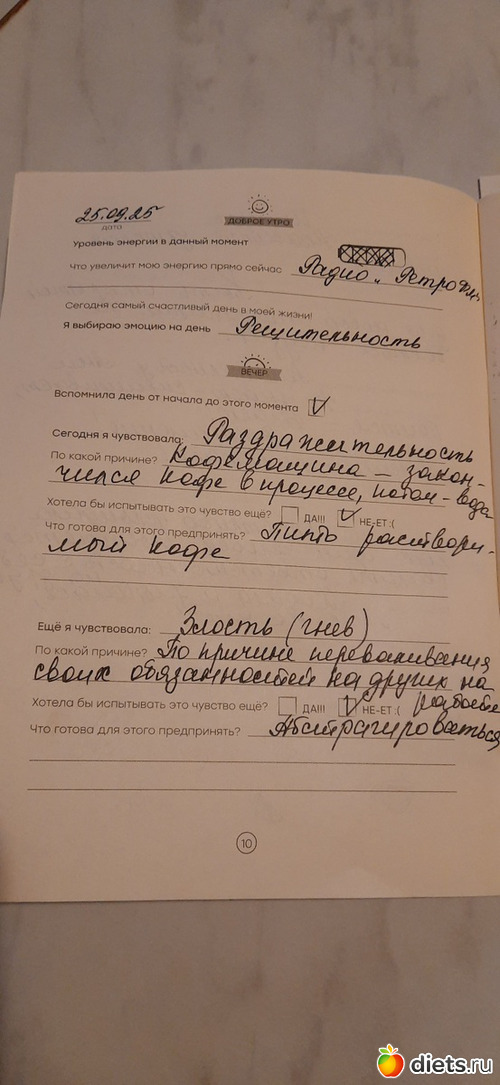 25.09.25
дата
ДОБРОЕ УТРО
Уровень энергии в данный момент
Что увеличит мою энергию прямо сейчас Радио „Ретро Фм"
Сегодня самый счастливый день в моей жизни!
Я выбираю эмоцию на день Решительность
ВЕЧЕР
Вспомнила день от начала до этого момента
Сегодня я чувствовала: Раздражительность
По какой причине? Кофемашина – закон-
чился кофе в процессе, потом – вода
Хотела бы испытывать это чувство ещё? ДА!!! НЕ-ЕТ :(
Что готова для этого предпринять? Пить раствори-
мый кофе
Ещё я чувствовала: Злость (гнев)
По какой причине? По причине переваливания
своих обязанностей на других на
работе
Хотела бы испытывать это чувство ещё? ДА!!! НЕ-ЕТ :(
Что готова для этого предпринять? Абстрагироваться
10
diets.ru